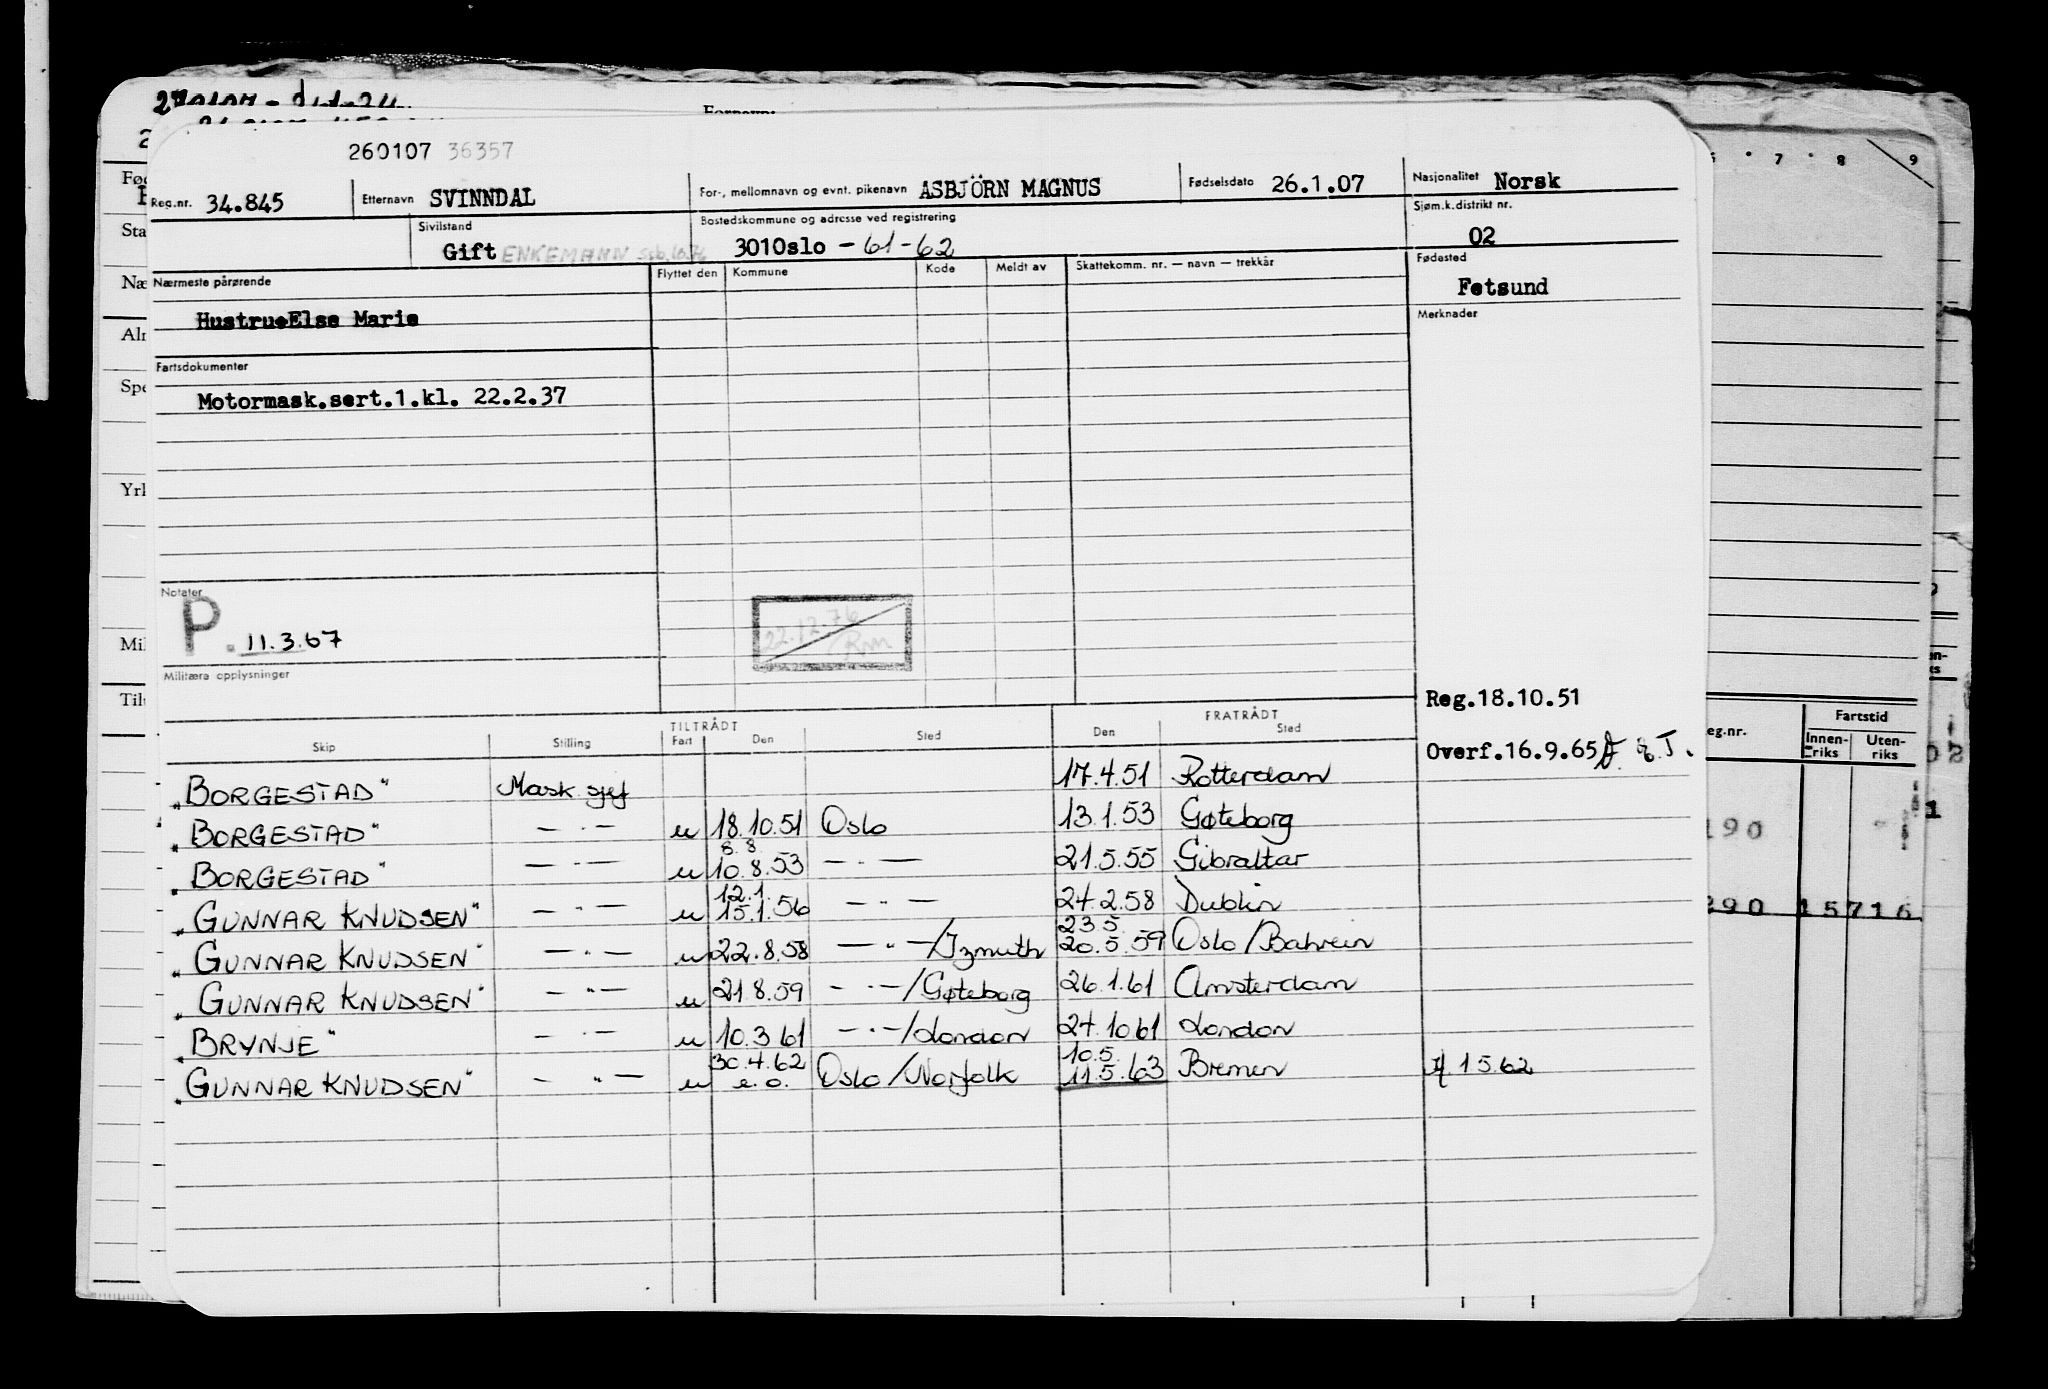 Fornavn:
260107 36357
Reg.nr. 34.845 Etternavn SVINNDAL For-, mellomnavn og evnt. pikenavn ASBJÖRN MAGNUS Fødselsdato 26.1.07 Nasjonalitet Norsk
Sivilstand Gift ENKEMANN Bostedskommune og adresse ved registrering 301Oslo - 61 - 62 Sjøm.k.distrikt nr. 02
Nærmeste pårørende Flyttet den Kommune Kode Meldt av Skattekomm. nr. — navn — trekkår Fødested
Fetsund
HustrueElse Marie Merknader
Fartsdokumenter
Motormask.sert.1.kl. 22.2.37
Notater
P. 11.3.67
22.12.76 Rm
Militære opplysninger
Reg.18.10.51
TILTRÅDT FRATRÅDT
Skip Stilling Fart Den Sted Den Sted
Overf.16.9.65
"BORGESTAD" Mask.sjef 17.4.51 Rotterdam
"BORGESTAD" — " — u 18.10.51 Oslo 13.1.53 Gøteborg
8.8
"BORGESTAD" — " — u 10.8.53 — " — 21.5.55 Gibraltar
12.1.
"GUNNAR KNUDSEN" — " — u 15.1.56 — " — 24.2.58 Dublin
23.5.
"GUNNAR KNUDSEN" — " — u 22.8.58 — " — /Izmuth 20.5.59 Oslo/Bahrein
"GUNNAR KNUDSEN" — " — u 21.8.59 — " — /Gøteborg 26.1.61 Amsterdam
"BRYNJE" — " — u 10.3.61 — " — /London 24.10.61 London
30.4.62 10.5.
"GUNNAR KNUDSEN" — " — u e.o. Oslo/Norfolk 11.5.63 Bremen 1.5.62
7 8 9
eg.nr. Fartstid
Innen-riks Uten-riks
190
290 15716